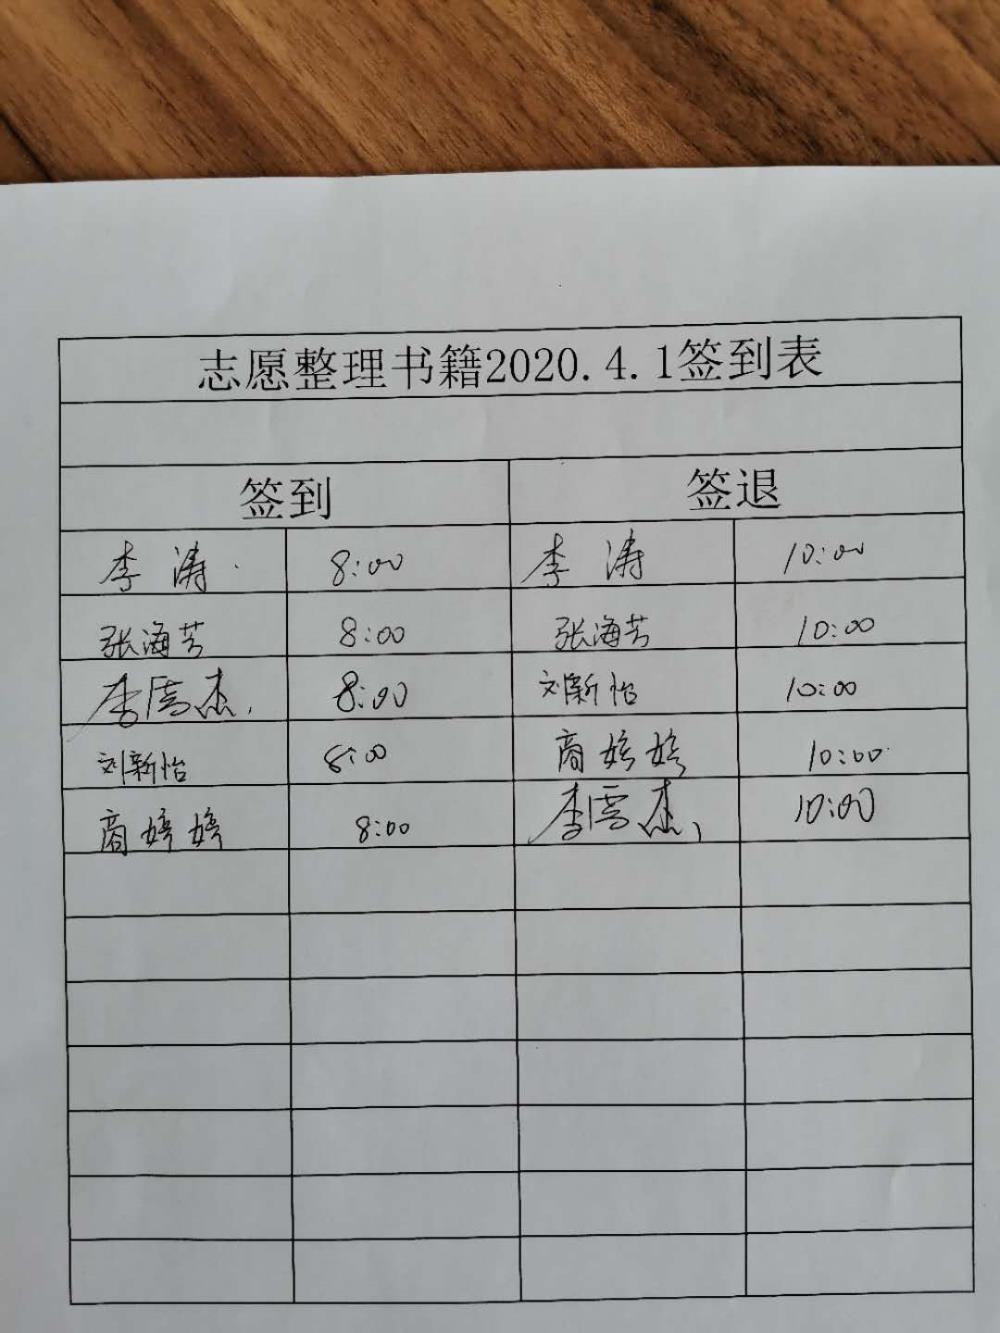 志愿整理书籍2020.4.1签到表
签到 签退
李涛 8:00 李涛 10:00
张海芳 8:00 张海芳 10:00
李雪杰 8:00 刘新怡 10:00
刘新怡 8:00 商婷婷 10:00
商婷婷 8:00 李雪杰 10:00